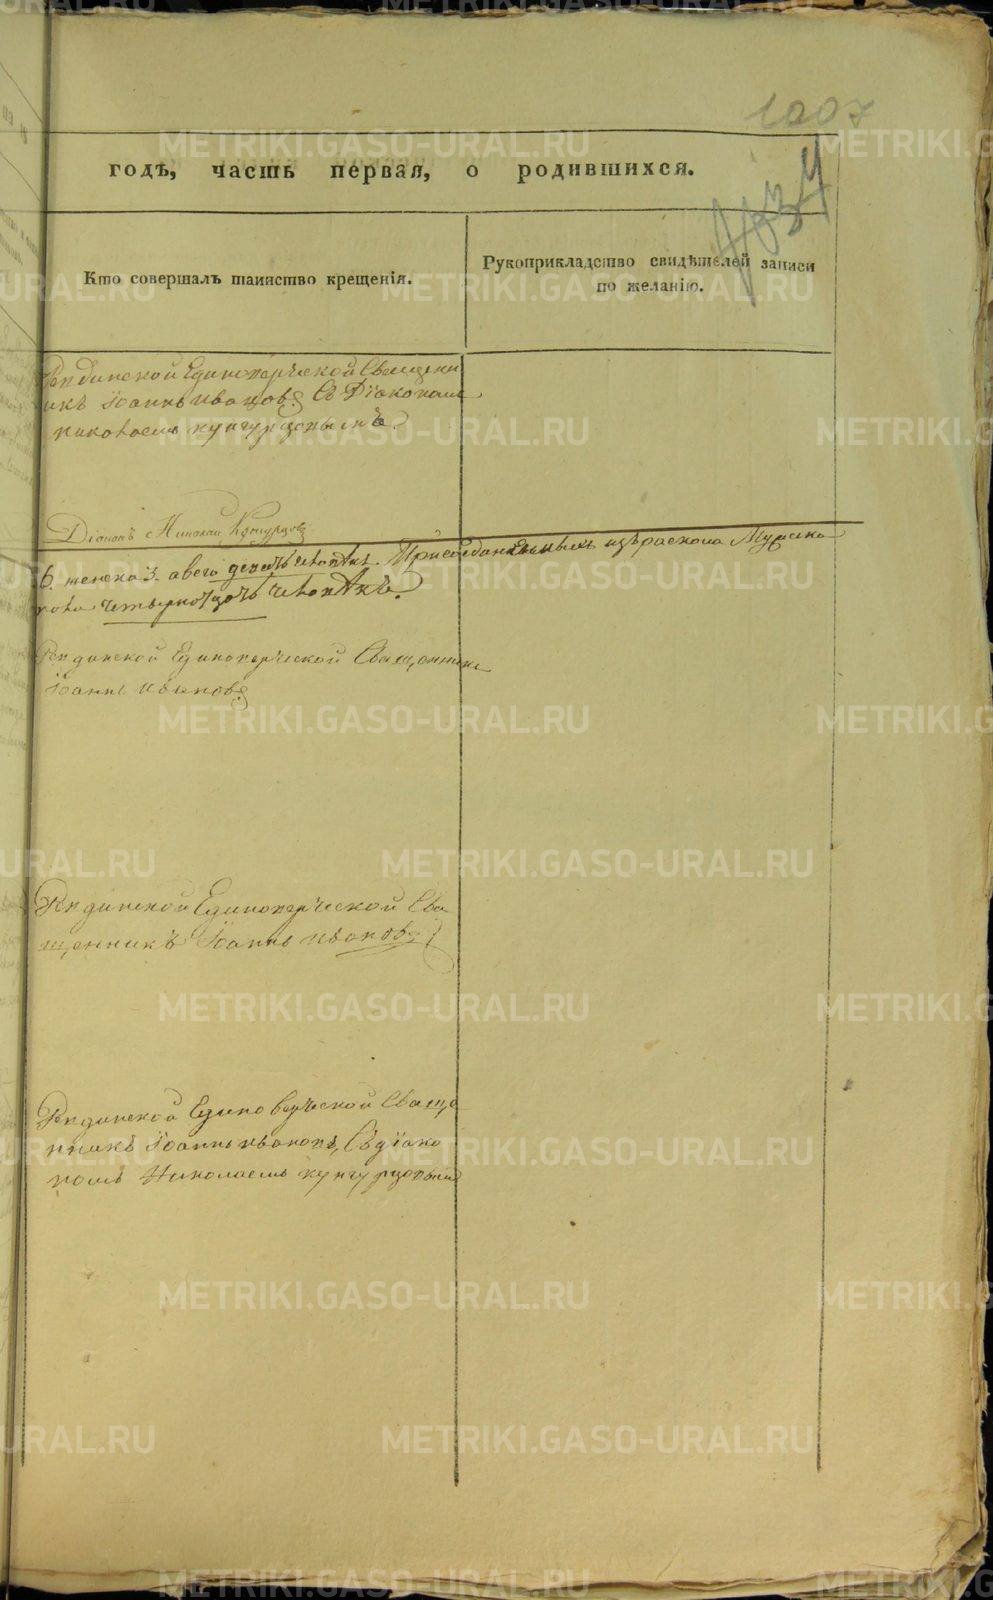 METRIKI.GASO-URAL.RU
1007
годъ, часть первая, о родившихся.
Кто совершалъ таинство крещенія.
Рукоприкладство свидѣтелей записи
по желанію.
Единоверческой Священи
икъ Іоаннъ Ивановъ Съ Діакономъ
николаемъ кунгурцовымъ.
Діаконъ Николай Кунгурцовъ
6. женска 3. авсего девять человѣкъ. Присоединенныхъ изъ раскола Мужска
четырнатцать человѣкъ.
Единоверческой Священникъ
Іоаннъ Ивановъ
Единоверческой Свя
щенникъ Іоаннъ Ивановъ
Единоверческой Свяще
нникъ Іоаннъ Ивановъ, Съ діако
номъ Николаемъ кунгурцовымъ